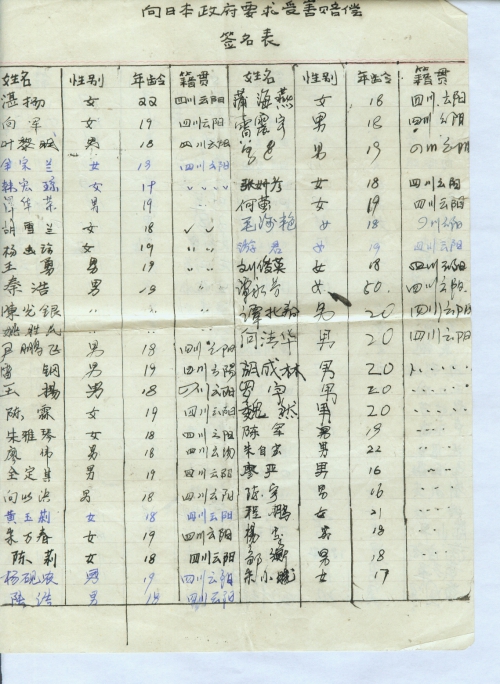 向日本政府要求受害赔偿
签名表
姓名 性别 年龄 籍贯 姓名 性别 年龄 籍贯
湛杨 女 22 四川云阳 蒲海燕 女 18 四川云阳
向军 女 19 四川云阳 雷震宇 男 18 四川云阳
叶黎明 男 18 四川云阳 男 19 四川云阳
余家兰 女 18 四川云阳
女 19 〃 〃 〃 〃 张 女 18 四川云阳
谭华荣 男 19 何 女 19 四川云阳
胡雪兰 女 18 〃 〃 毛海艳 女 18 四川云阳
杨 女 19 〃 〃 游君 女 19 四川云阳
王勇 男 19 〃 〃 刘俊英 女 18 四川云阳
秦浩 男 18 〃 〃 女 50 四川云阳
陈光银 〃 〃 〃 〃 谭 男 20 四川云阳
姚胜民 〃 〃 〃 向清华 男 20 四川云阳
尹鹏飞 男 18 四川云阳 胡成林 男 20 〃 〃 〃 〃
钢 男 19 四川云阳 罗军 男 20 〃 〃 〃
王杨 男 18 四川云阳 魏 男 20 〃 〃 〃
陈霖 女 19 四川云阳 陈军 男 19 〃 〃 〃
朱雅琴 女 18 四川云阳 朱自宏 男 22 〃 〃 〃
廖伟 男 18 四川云阳 廖亚 男 16 〃 〃 〃
全定其 男 19 四川云阳 陈宇 男 16 〃 〃
向以洪 男 18 四川云阳 程鹏 女 21 〃 〃 〃
黄玉莉 女 18 四川云阳 杨 男 18 〃 〃 〃
朱万春 女 19 四川云阳 男 18 〃 〃 〃
陈莉 女 18 四川云阳 朱小 女 17 〃 〃 〃
杨砚波 男 19 四川云阳
陆浩 男 18 四川云阳